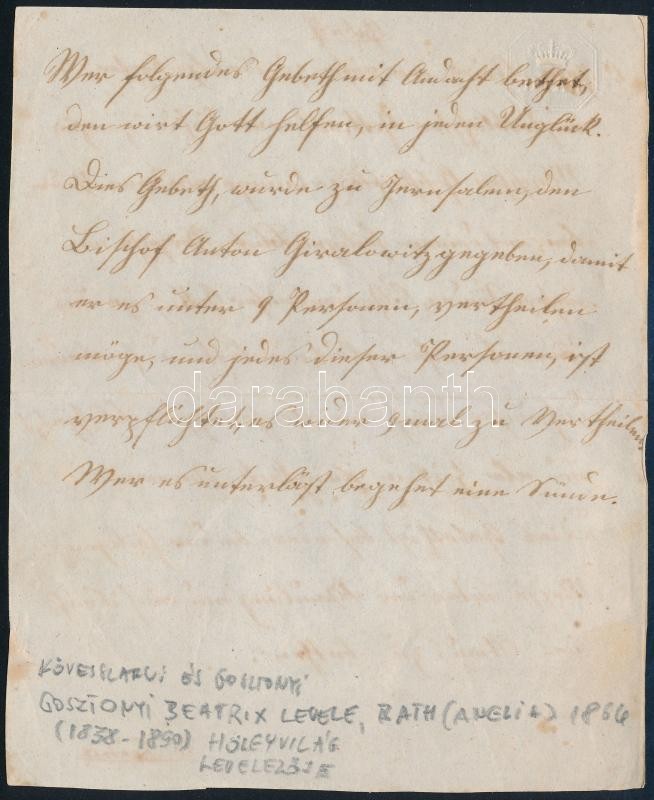 Wer folgendes Gebeth mit Andacht bethet,
den wirt Gott helfen, in jeden Unglück.
Dies Gebeth, wurde zu Jerusalem, den
Bischof Anton Giralowitz gegeben, damit
er es unter 9 Personen, vertheilen
möge, und jedes dieser Personen, ist
verpflichtet, es wider 9 mal zu Vertheilen.
Wer es unterläst begehet eine Sünde.
darabanth
ÉS
GOSZTONYI BEATRIX LEVELE, RATH (AMELIA) 1866
(1838-1890) HÖLGYVILÁG
LEVELEZŐJE